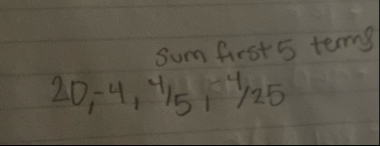 Sum first 5 terms
20, -4, 4/5, -4/25